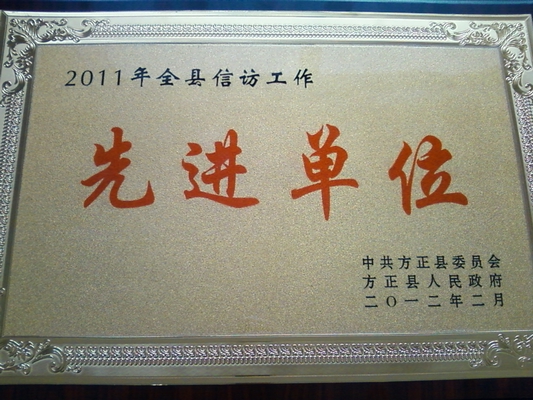 2011年全县信访工作
先进单位
中共方正县委员会
方正县人民政府
二〇一二年二月